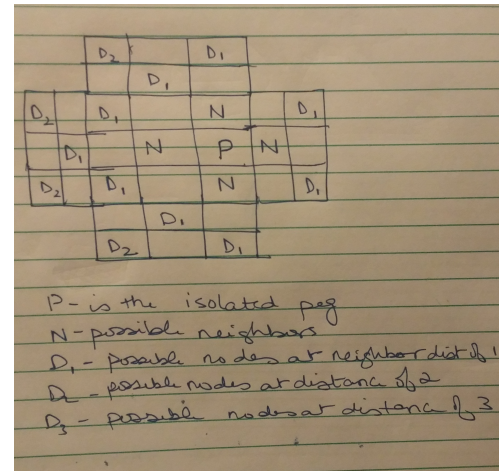 D2 D1
D1
D2 D1 N D1
D1 N P N
D2 D1 N D1
D1
D2 D1
P- is the isolated peg
N-possible neighbors
D1 - possible nodes at neighbor dist of 1
D2 - possible nodes at distance of 2
D3 - possible nodes at distance of 3